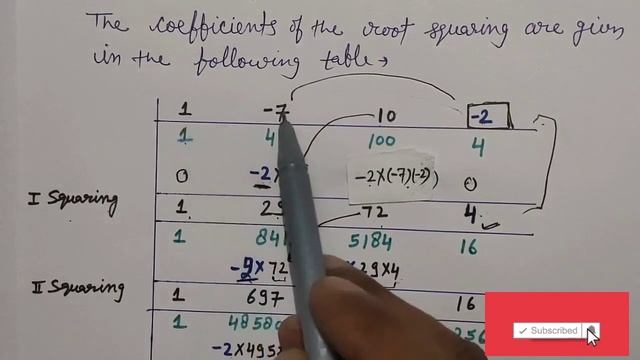 The coefficients of the root squaring are given
in the following table→
1 -7 10 -2
1 4 100 4
0 -2× -2×(-7)(-2)) 0
I Squaring
1 29 72 4
1 841 5184 16
-2×72 ×29×4
II Squaring
1 697 16
1 256
-2×495
Subscribed